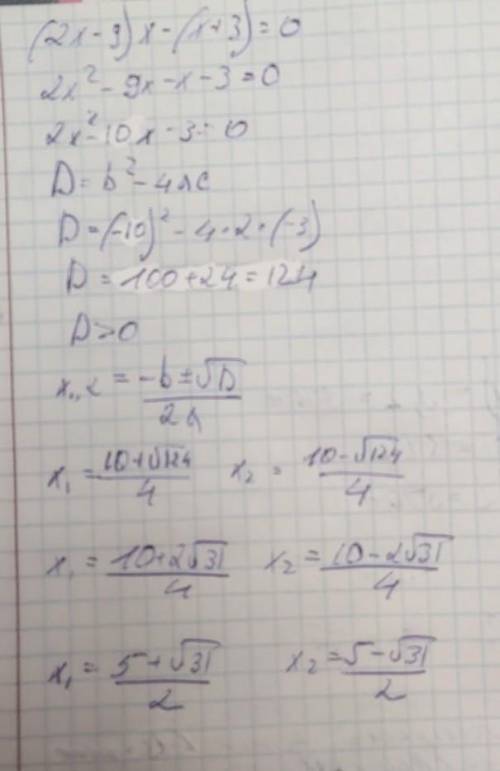 (2x-9)x-(x+3)=0
2x²-9x-x-3=0
2x²-10x-3=0
D=b²-4ac
D=(-10)²-4·2·(-3)
D=100+24=124
D>0
x₁,₂ = (-b±√D)/(2a)
x₁ = (10+√124)/4 x₂ = (10-√124)/4
x₁ = (10+2√31)/4 x₂ = (10-2√31)/4
x₁ = (5+√31)/2 x₂ = (5-√31)/2